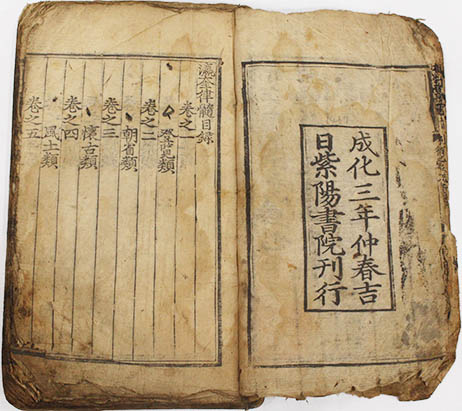 成化三年仲春吉
日紫陽書院刊行
瀛奎律髓目録
卷之一
登覽類
卷之二
朝省類
卷之三
懷古類
卷之四
風土類
卷之五